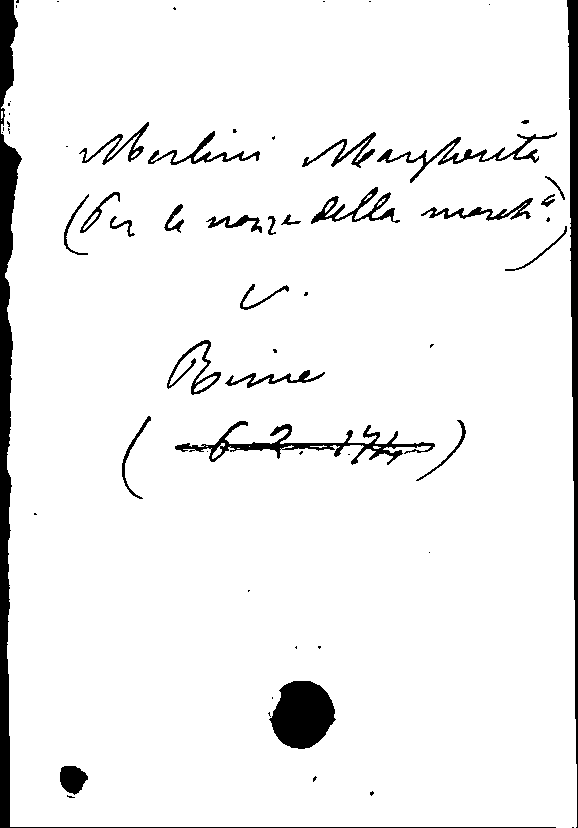 Merlini Margherita
(Per le nozze della march.ª)
v.
Rime
(6. 2. 174)